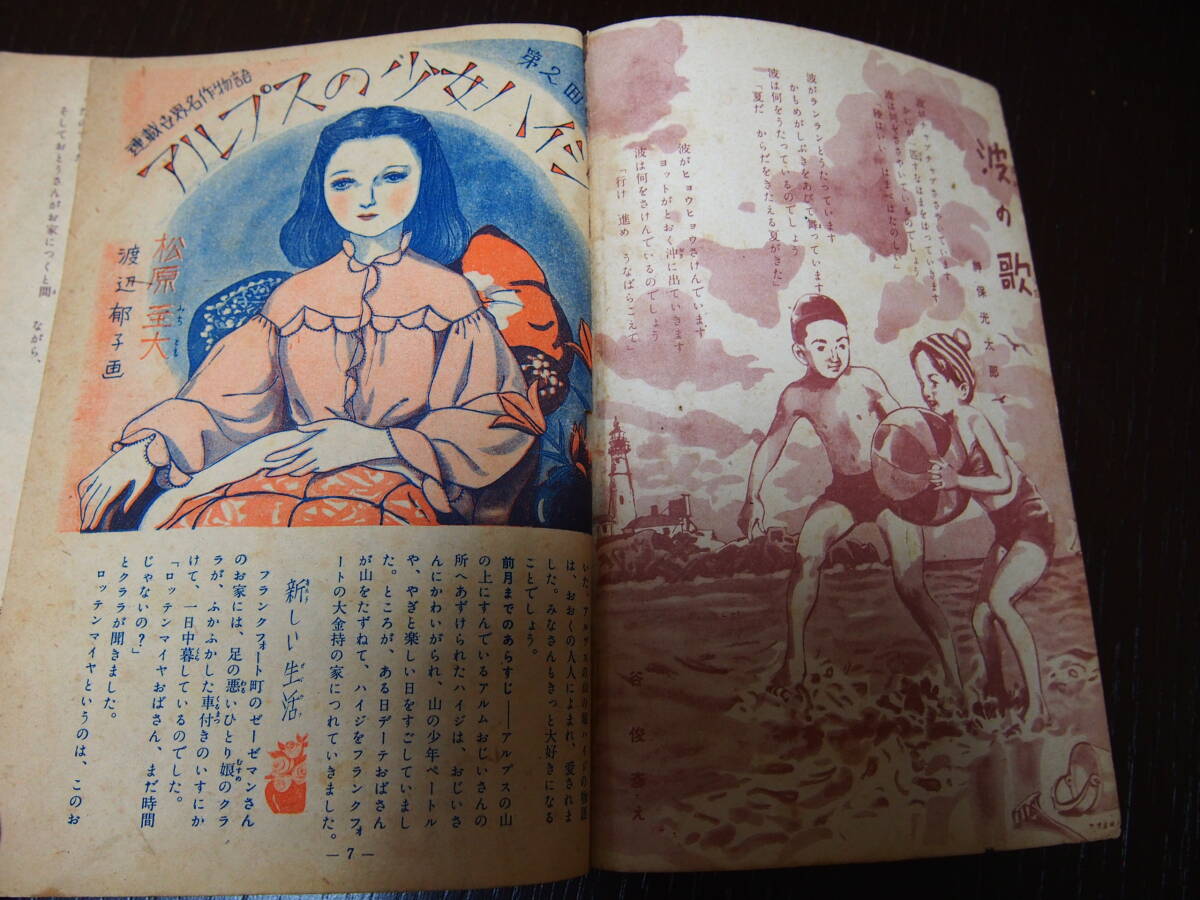 波の歌
波がチャプチャプささやいています
波は何をささやいているのでしょう
波がランランとうたっています
かもめがしぶきをあびて舞っています
波は何をうたっているのでしょう
「夏だ からだをきたえる夏がきた」
波がヒョウヒョウさけんでいます
ヨットがとおく沖に出ていきます
波は何をさけんでいるのでしょう
「行け 進め うなばらこえて」
谷 俊彦・え
連載世界名作物語
アルプスの少女ハイジ
第2回
松原至大
みちとも
渡辺郁子画
は、おおくの人人によまれ、愛されま
した。みなさんもきっと大好きになる
ことでしょう。
前月までのあらすじ——アルプスの山
の上にすんでいるアルムおじいさんの
所へあずけられたハイジは、おじいさ
んにかわいがられ、山の少年ペートル
や、やぎと楽しい日をすごしていまし
た。ところが、ある日デーテおばさん
が山をたずねて、ハイジをフランクフォ
ートの大金持の家につれていきました。
新しい生活
フランクフォート町のゼーゼマンさん
のお家には、足の悪いひとり娘のクラ
ラが、ふかふかした車付きのいすにか
けて、一日中暮しているのでした。
「ロッテンマイヤおばさん、まだ時間
じゃないの？」
とクララが聞きました。
ロッテンマイヤというのは、このお
— 7 —
そしておとうさんがお家につくと間
ながら、